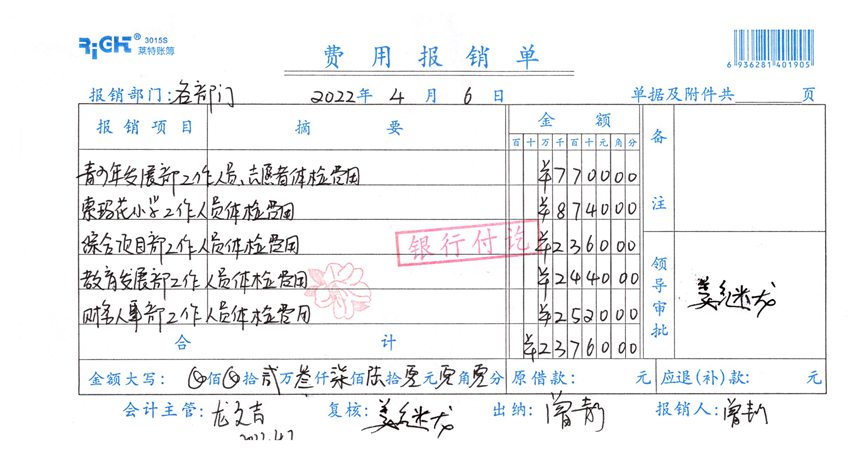 RiGHT® 3015S
莱特账簿
费用报销单
6 936281 401905
报销部门:各部门 2022年 4月 6日 单据及附件共 页
报销项目 摘要 金额 备注
百十万千百十元角分
青少年发展部工作人员、志愿者体检费用 ¥770000
东玛花小学工作人员体检费用 ¥874000
综合项目部工作人员体检费用 ¥236000
银行付讫
教育发展部工作人员体检费用 ¥244000
财务人事部工作人员体检费用 ¥252000
领导审批 姜继龙
合计 ¥2376000
金额大写: ⊗佰⊗拾贰万叁仟柒佰陆拾零元零角零分 原借款: 元 应退(补)款: 元
会计主管:龙文吉 复核:姜继龙 出纳:曾 报销人:曾